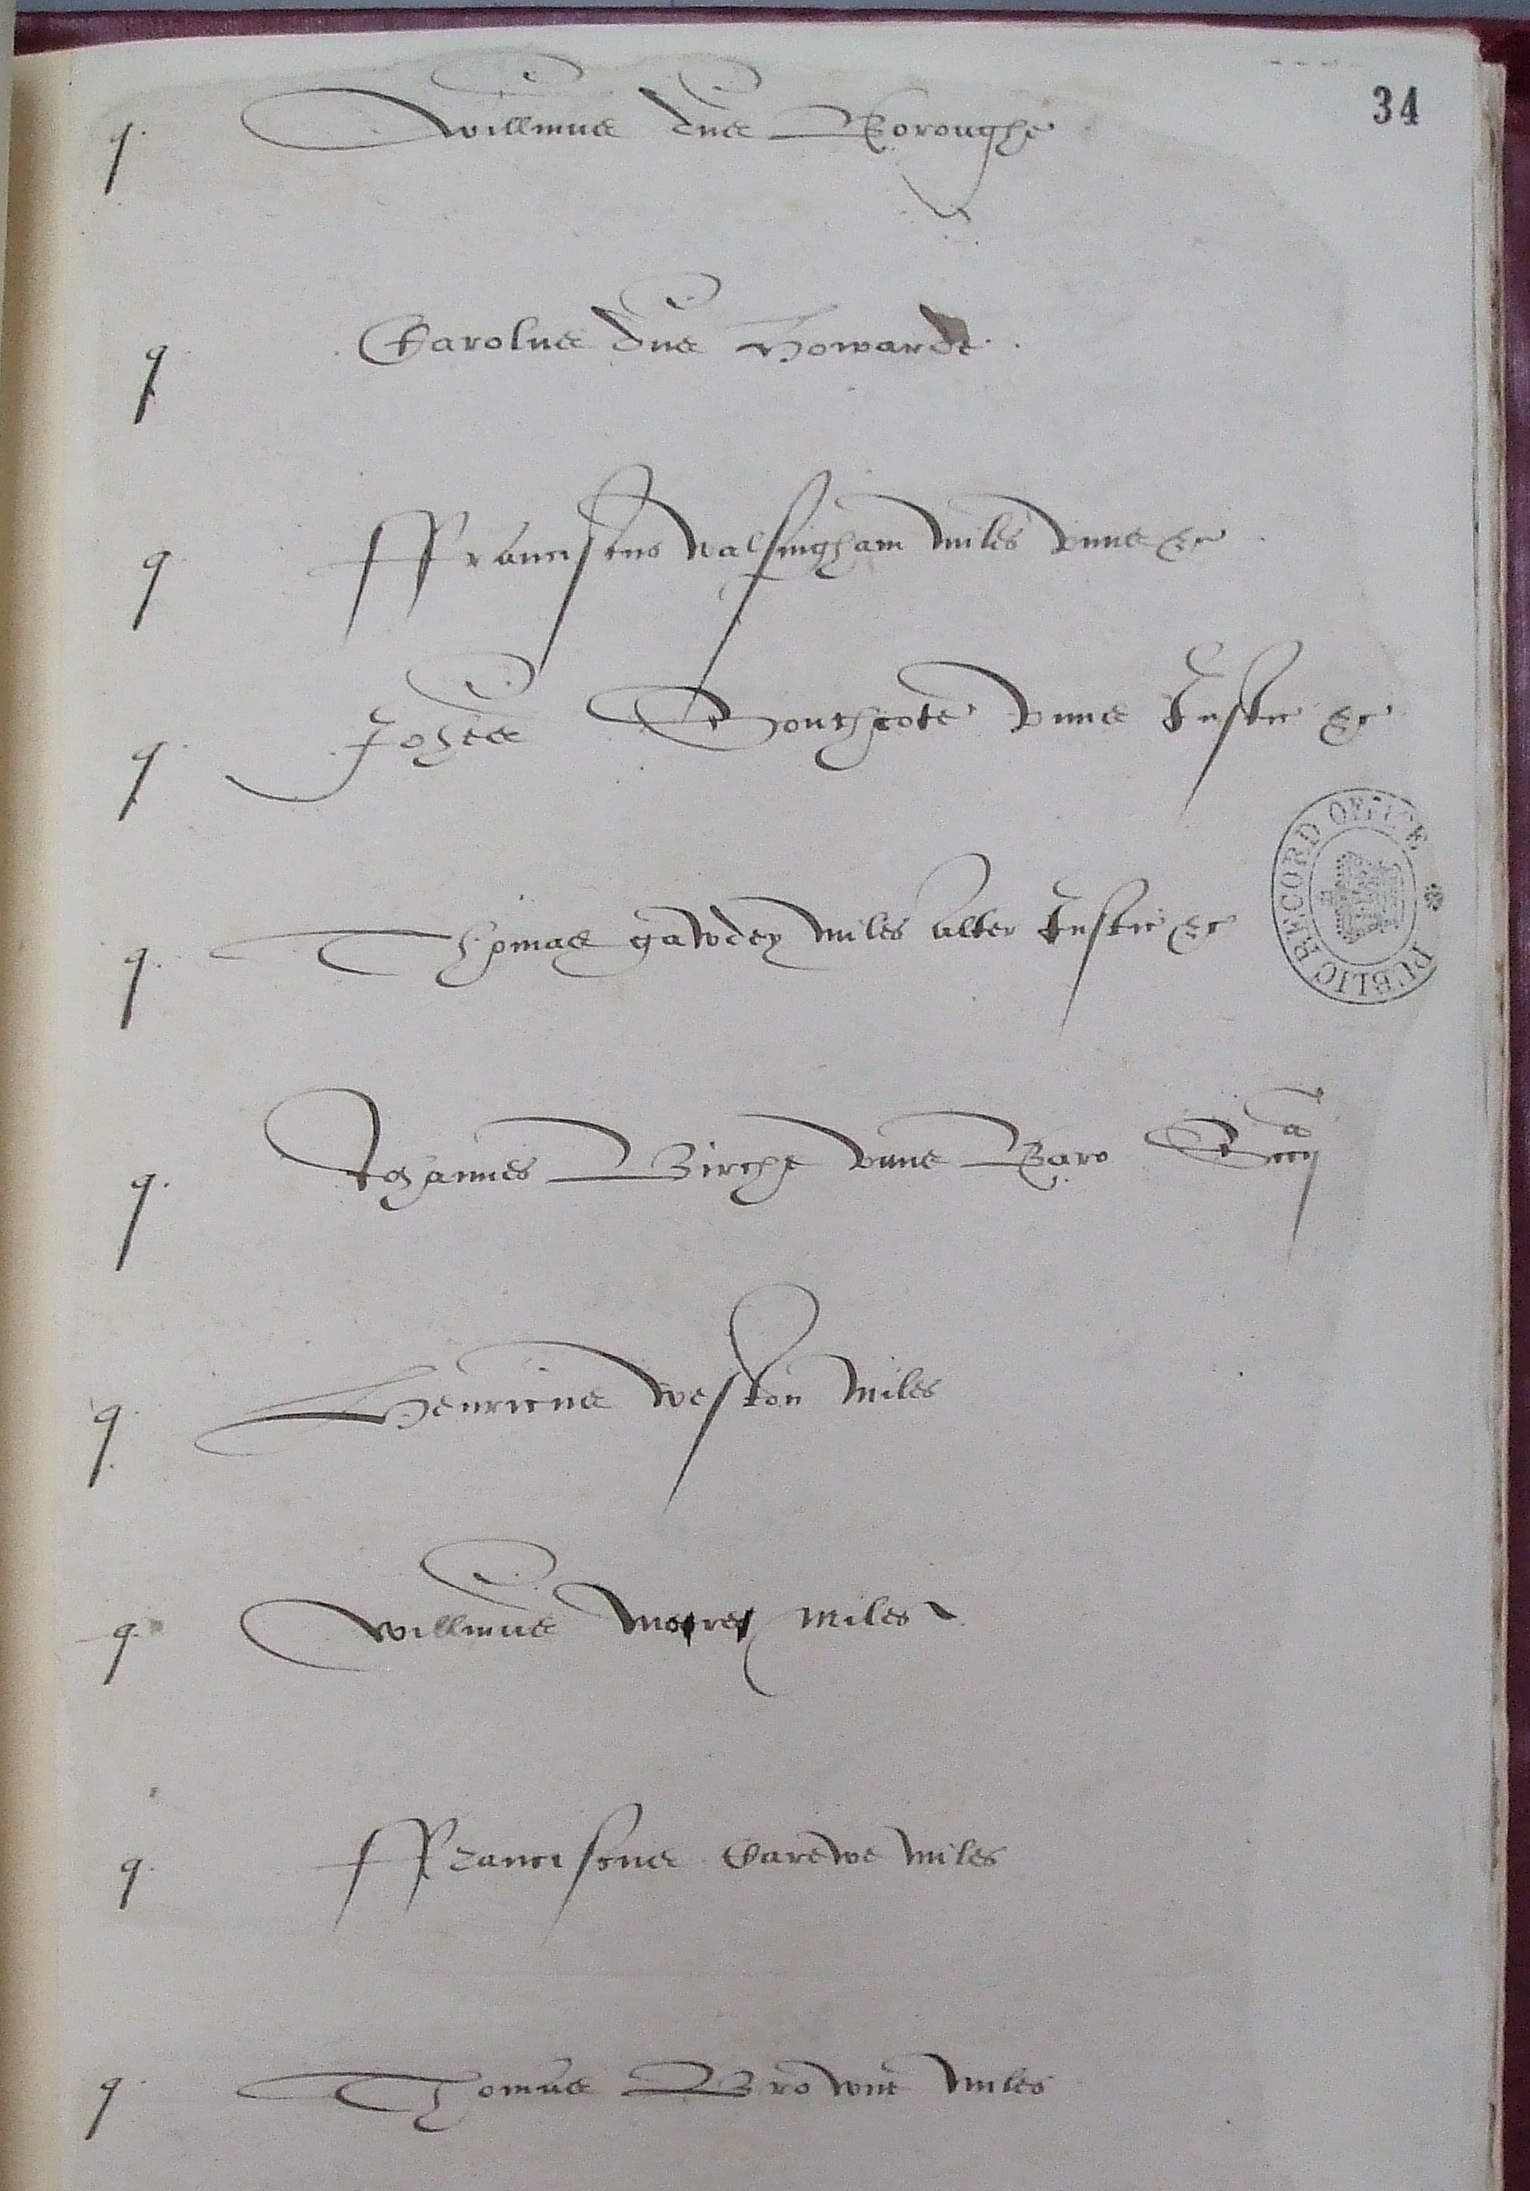 34
q. Willmus dns Boroughe
q Carolus dns Howarde
q ffranciscus walsingham miles vnus &c
q. Johes Southcote vnus Justic &c
q. Thomas gawdey miles alter Justic &c
q. Johannes Birche vnus Baro Sccij
q. Henricus weston miles
q. Willmus Morey miles
q. ffranciscus Carewe miles
q. Thomas Browne miles
PUBLIC RECORD OFFICE